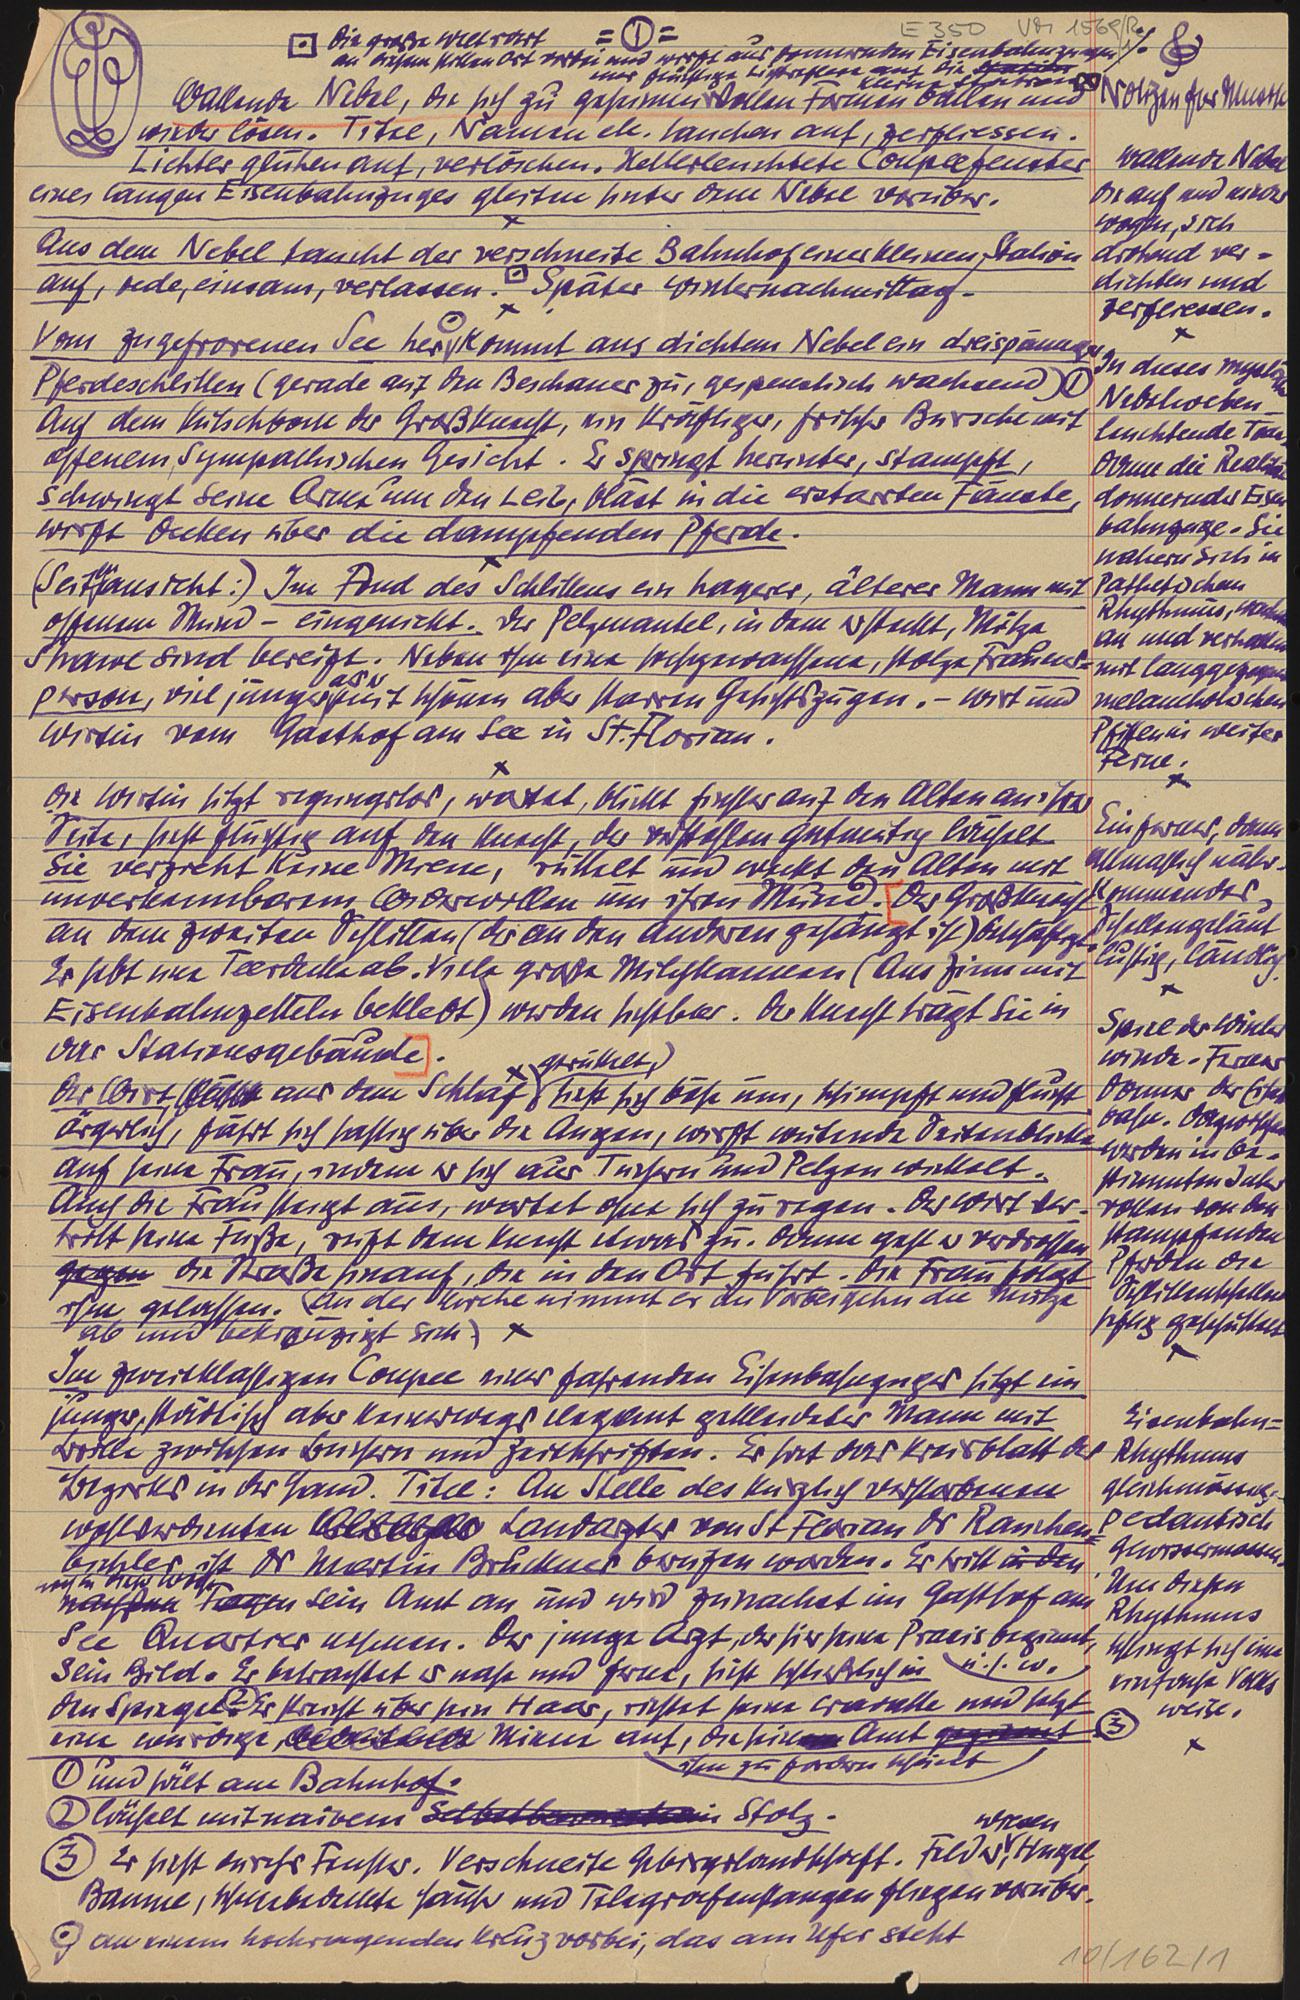 E 350 VDr 1569/Re
= 1 =
Die große Welt rast
an diesem stillen Ort vorbei und wirft aus donnernden Eisenbahnzügen
nur flüchtige Lichtreflexe auf die kleine Station
Wallende Nebel, die sich zu geheimnisvollen Formen ballen und
wieder lösen. Titel, Namen etc. tauchen auf, zerfliessen.
Lichter glühen auf, verlöschen. Hellerleuchtete Coupeefenster
eines langen Eisenbahnzuges gleiten hinter dem Nebel vorüber.
x
Aus dem Nebel taucht der verschneite Bahnhof einer kleinen Station
auf, oede, einsam, verlassen. Später Winternachmittag.
x
Vom zugefrorenen See her kommt aus dichtem Nebel ein dreispänniger
Pferdeschlitten (gerade auf den Beschauer zu, gespenstisch wachsend) 1
Auf dem Kutschbock der Großknecht, ein kräftiger, frischer Bursche mit
offenem, sympathischen Gesicht. Er springt herunter, stampft,
schwingt seine Arme um den Leib, bläst in die erstarrten Fäuste,
wirft Decken über die dampfenden Pferde.
x
(Seitenansicht:) Im Fond des Schlittens ein hagerer, älterer Mann mit
offenem Mund – eingenickt. Der Pelzmantel, in dem er steckt, Mütze
Shawl sind bereift. Neben ihm eine hochgewachsene, stolze Frauens-
person, viel jünger als er mit schönen aber starren Gesichtszügen. – Wirt und
Wirtin vom Gasthof am See in St. Florian.
x
Die Wirtin sitzt regungslos, wartet, blickt finster auf den Alten an ihrer
Seite, sieht flüchtig auf den Knecht, der verstohlen gutmütig lächelt
Sie verzieht keine Miene, rüttelt und weckt den Alten mit
unverkennbarem Widerwillen um ihren Mund. [Der Großknecht
an dem zweiten Schlitten (der an den anderen gehängt ist) beschäftigt.
Er hebt eine Teerdecke ab. Viele große Milchkannen (aus Zinn mit
Eisenbahnzetteln beklebt) werden sichtbar. Der Knecht trägt sie in
das Stationsgebäude].
x
Der Wirt, aus dem Schlaf gerüttelt, sieht sich böse um, schimpft und flucht
ärgerlich, fährt sich hastig über die Augen, wirft wütende Seitenblicke
auf seine Frau, indem er sich aus Tüchern und Pelzen wickelt.
Auch die Frau steigt aus, wartet ohne sich zu regen. Der Wirt ver-
tritt seine Füße, ruft dem Knecht etwas zu. Dann geht er verdrossen
gegen die Straße hinauf, die in den Ort führt. Die Frau folgt
ihm gelassen. (An der Kirche nimmt er im Vorbeigehn die Mütze
ab und bekreuzigt sich) x
Im zweitklassigen Coupee eines fahrenden Eisenbahnzuges sitzt ein
junger, städtisch aber keineswegs elegant gekleideter Mann mit
Brille zwischen Büchern und Zeitschriften. Er hat das Kreisblatt des
Bezirks in der Hand. Titel: An Stelle des kürzlich verstorbenen
wohlverdienten Landarztes von St Florian Dr Rauchen-
bichler ist Dr Martin Bruckner berufen worden. Er tritt in den
noch in dieser Woche
nächsten Tagen sein Amt an und wird zunächst im Gasthof am
See Quartier nehmen. Der junge Arzt, der hier seine Praxis beginnt,
u.s.w.
sein Bild. Er betrachtet es nahe und ferne, sieht schließlich in
den Spiegel 2 Er streicht über sein Haar, richtet seine Cravatte und setzt
eine würdige, Miene auf, die sein Amt 3
ihm zu fordern scheint
1 und hält am Bahnhof.
2 lächelt mit naivem Stolz.
3 Er sieht durchs Fenster. Verschneite Gebirgslandschaft. Felder, Wiesen, Hügel
Bäume, schneebedeckte Häuser und Telegrafenstangen fliegen vorüber.
an einem hochragenden Kreuz vorbei, das am Ufer steht
Notizen für Musik
Wallende Nebel
die auf und nieder
wogen, sich
drohend ver-
dichten und
zerfliessen.
x
In dieses mystische
Nebelweben
leuchtende Töne,
dann die Realität
donnernder Eisen
bahnzüge. Sie
nähern sich in
Pathetischem
Rhythmus, wachsen
an und verhallen
mit langgezogenen
melancholischen
Pfiffen in weiter
Ferne.
x
Ein fernes, dann
allmählich näher-
kommendes,
Schellengeläut
lustig, ländlich.
x
Spiel der Winter
winde. Ferner
Donner der Eisen
bahn. Dazwischen
werden in be-
stimmten Inter
vallen von den
stampfenden
Pferden die
Schlittenschellen
heftig geschüttelt
x
Eisenbahn-
Rhythmus
gleichmässig,
pedantisch
gewissermassen.
Um diesen
Rhythmus
schlingt sich eine
einfache Volks
weise.
x
10/162/1